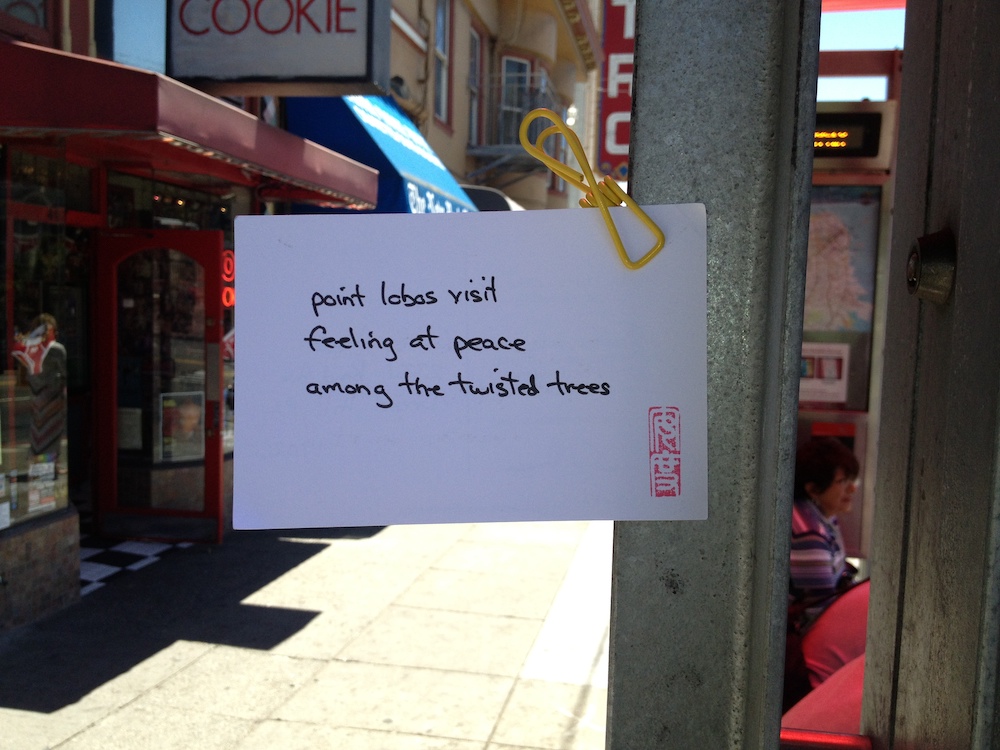 COOKIE
point lobos visit
feeling at peace
among the twisted trees